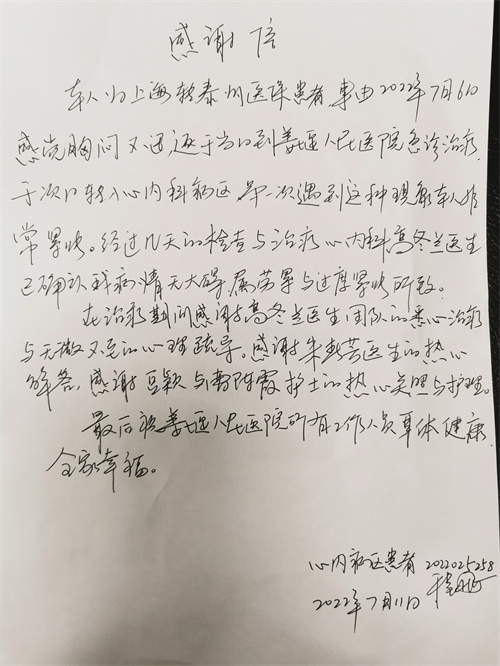 感谢信
本人归上海转泰州医保患者,事由2022年7月6日
感觉胸闷不适,逐于当日到姜堰人民医院急诊治疗,
于次日转入心内科病区,第一次遇到这种现象本人非
常紧张。经过几天的检查与治疗心内科高冬兰医生
已确认我病情无大碍,属劳累与过度紧张所致。
在治疗期间感谢高冬兰医生团队的悉心治疗
与无微不至的心理疏导。感谢朱医生的热心
解答,感谢豆颖与霞护士的热心关照与护理。
最后祝姜堰人民医院所有工作人员身体健康,
全家幸福。
心内病区患者 2022025258
2022年7月11日